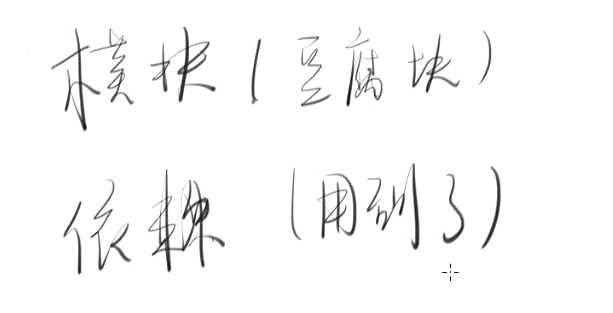 模块(豆腐块)
依赖(用到了)